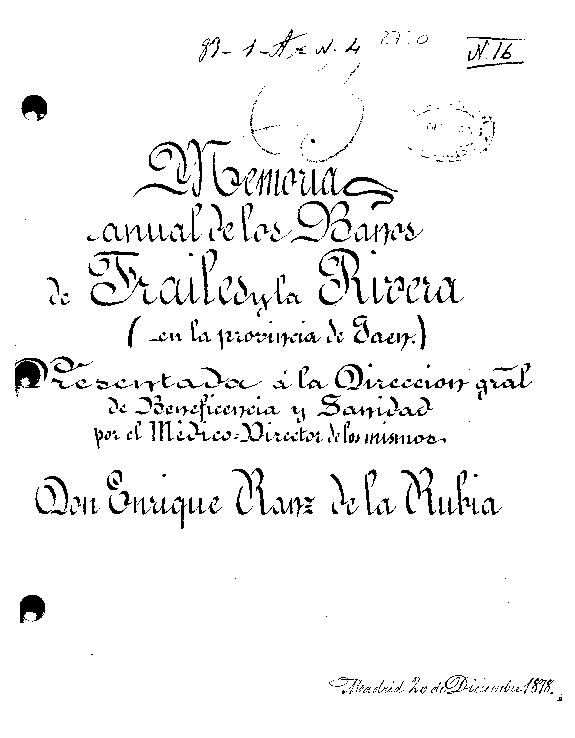 83-1-A-N. 4
N. 16
Memoria
anual de los Baños
de Frailes y la Rivera
(en la provincia de Jaen.)
Presentada á la Direccion gral
de Beneficencia y Sanidad
por el Médico-Director de los mismos.
Don Enrique Ranz de la Rubia
Madrid 20 de Diciembre 1878.